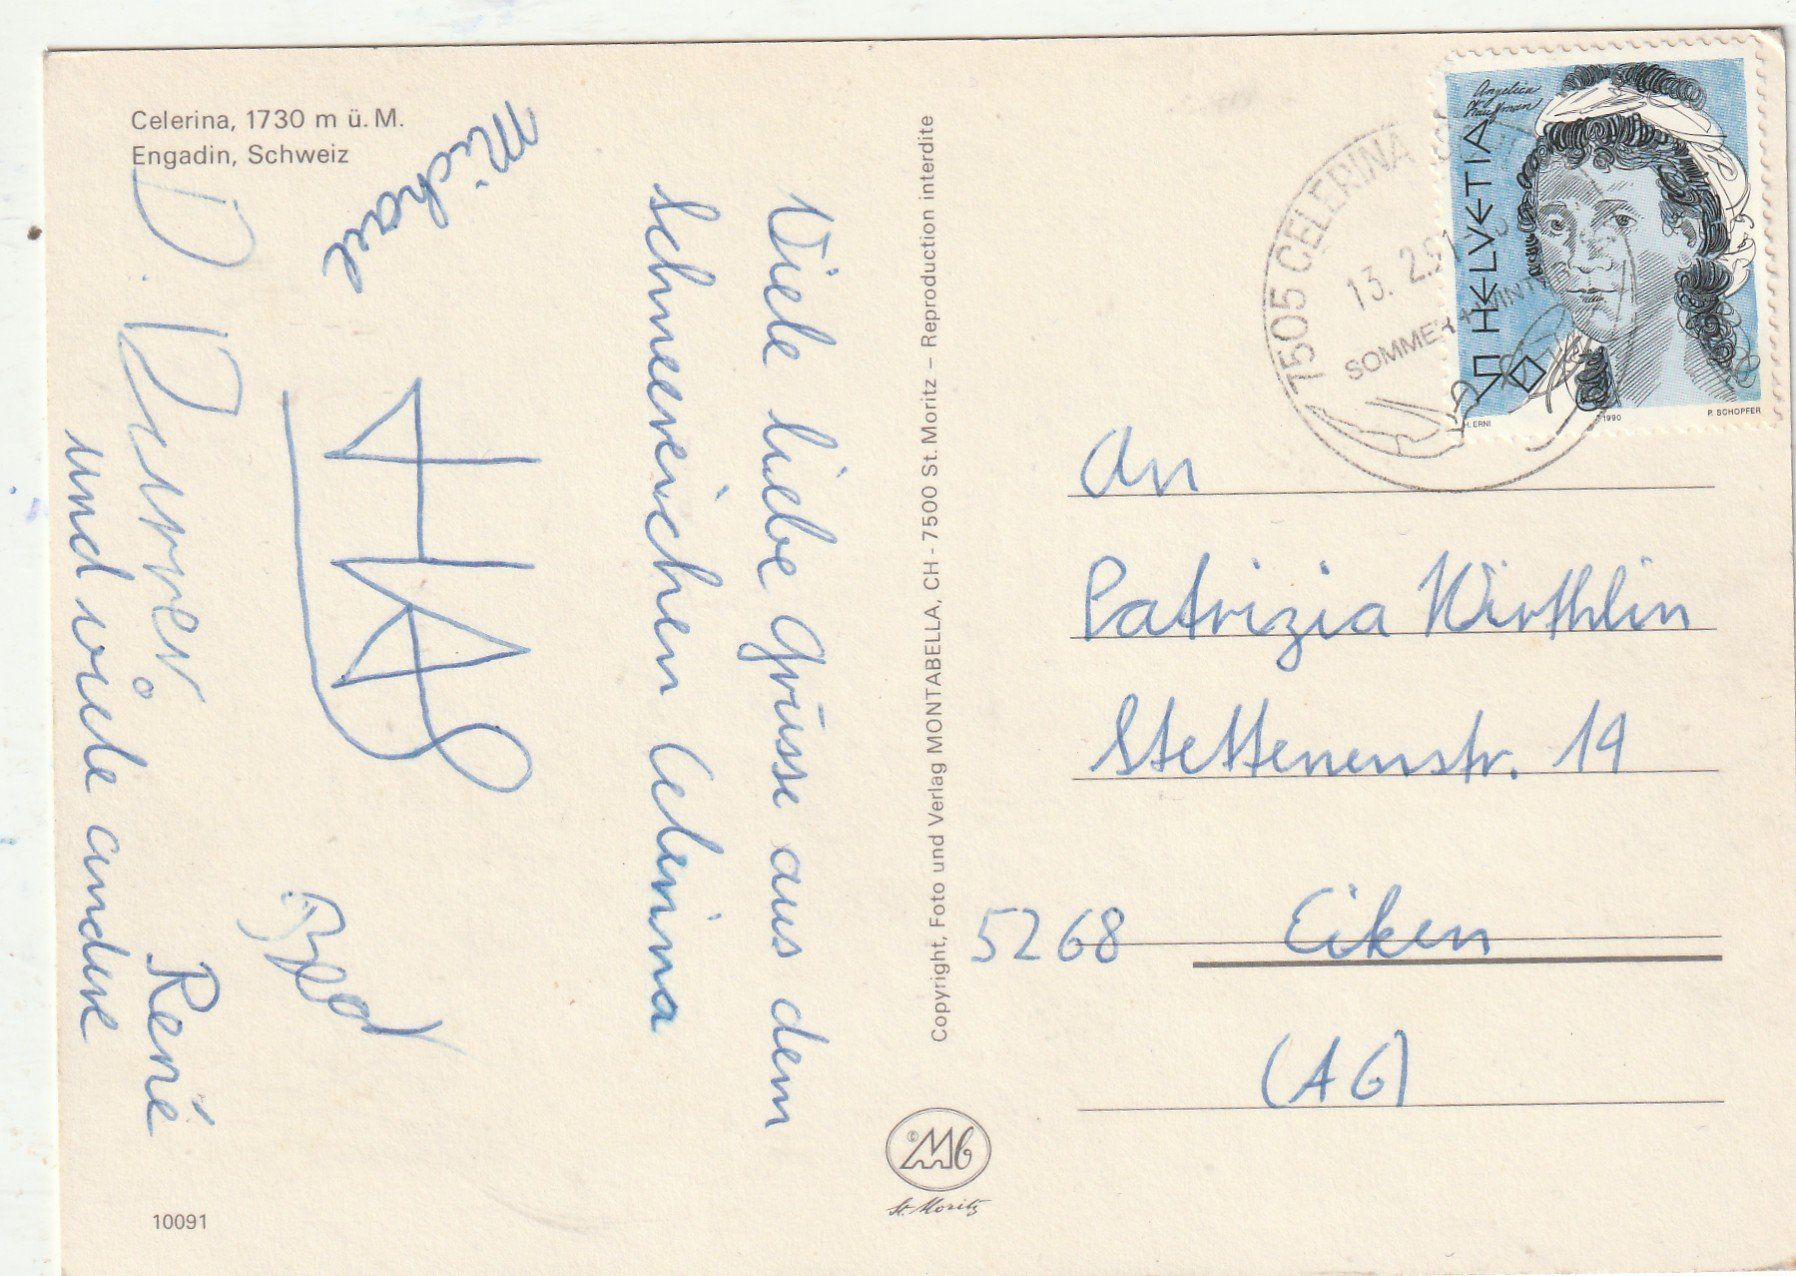 Celerina, 1730 m ü. M.
Engadin, Schweiz
Viele liebe Grüsse aus dem
schneereichen Celerina
Michael
D. Durrer
René
und viele andere
10091
Copyright, Foto und Verlag MONTABELLA, CH - 7500 St. Moritz – Reproduction interdite
© Mb
St. Moritz
7505 CELERINA
13. 2.91
SOMMER +
Angelica
Kauffman
HELVETIA
50
H. ERNI
1990
P. SCHOPFER
An
Patrizia Wirthlin
Stettenenstr. 19
5268 Eiken
(AG)